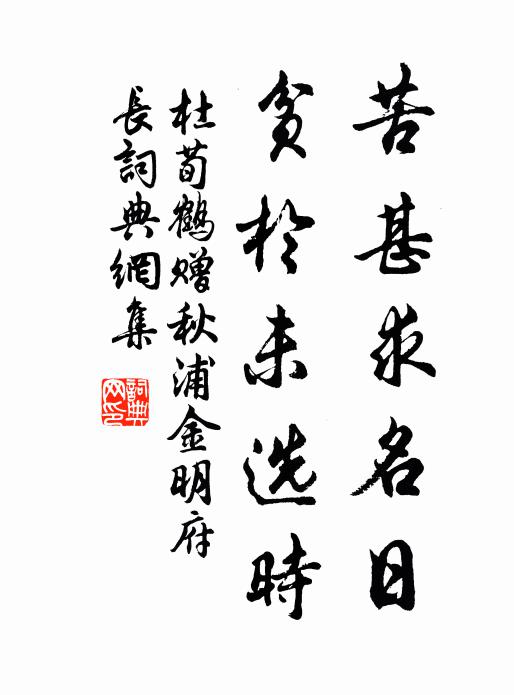 苦甚求名日
貧於未選時
杜荀鶴贈秋浦金明府
長詞典網集
詞典
网印